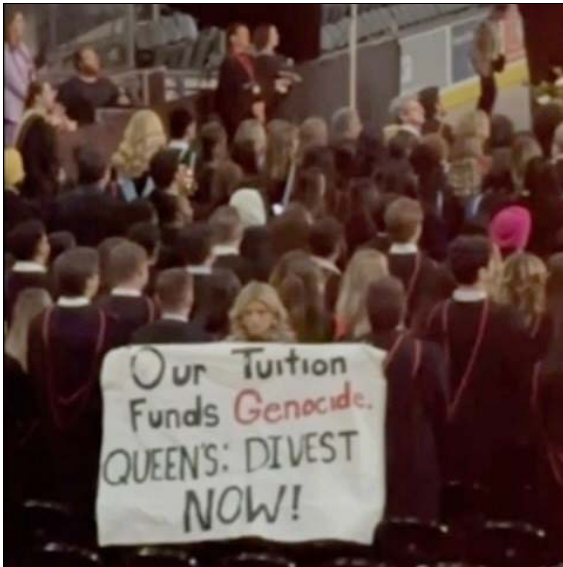 Our Tuition
Funds Genocide.
QUEEN'S: DIVEST
NOW!